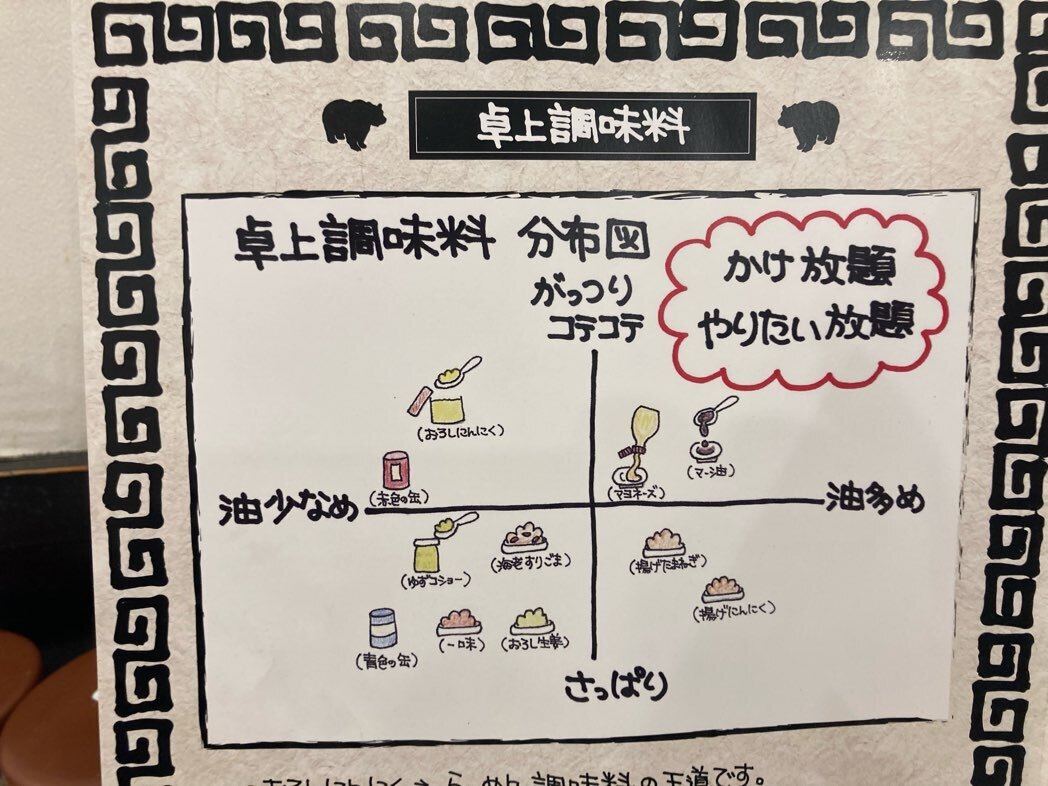 卓上調味料
卓上調味料 分布図
かけ放題
やりたい放題
がっつり
コテコテ
(おろしにんにく)
(赤色の缶)
(マヨネーズ)
(マー油)
油少なめ
油多め
(ゆずコショー)
(海老すりごま)
(揚げたまねぎ)
(揚げにんにく)
(青色の缶)
(一味)
(おろし生姜)
さっぱり
調味料の王道です。